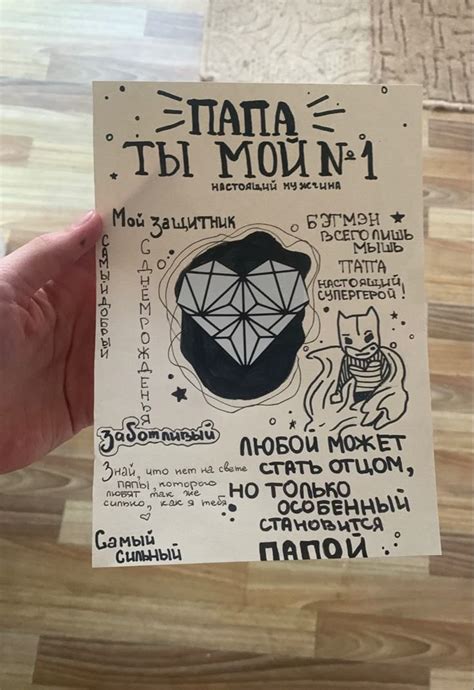 ПАПА
ТЫ МОЙ №1
НАСТОЯЩИЙ МУЖЧИНА
Мой ЗАЩИТНИК
САМЫЙ ДОБРЫЙ
С ДНЁМ РОЖДЕНЬЯ
БЭТМЭН
ВСЕГО ЛИШЬ
МЫШЬ
ПАПА
НАСТОЯЩИЙ
СУПЕРГЕРОЙ!
Заботливый
Знай, что нет на свете
папы, которого
любят так же
сильно, как я тебя
Самый
сильный
ЛЮБОЙ МОЖЕТ
СТАТЬ ОТЦОМ,
НО ТОЛЬКО
ОСОБЕННЫЙ
СТАНОВИТСЯ
ПАПОЙ